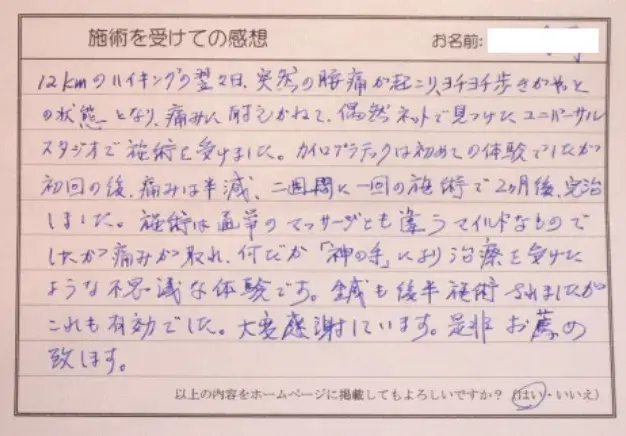 施術を受けての感想 お名前:
12kmのハイキングの翌々日、突然の腰痛が起こり、ヨチヨチ歩きがやっと
の状態となり、痛みに耐えかねて、偶然ネットで見つけたユニバーサル
スタジオで施術を受けました。カイロプラティックは初めての体験でしたが
初回の後、痛みは半減、二週間に一回の施術で2ヵ月後、完治
しました。施術は通常のマッサージとも違うマイルドなもので
したが痛みが取れ、何だか「神の手」により治療を受けた
ような不思議な体験です。鍼も後半施術されましたが
これも有効でした。大変感謝しています。是非お薦め
致します。
以上の内容をホームページに掲載してもよろしいですか？(はい・いいえ)